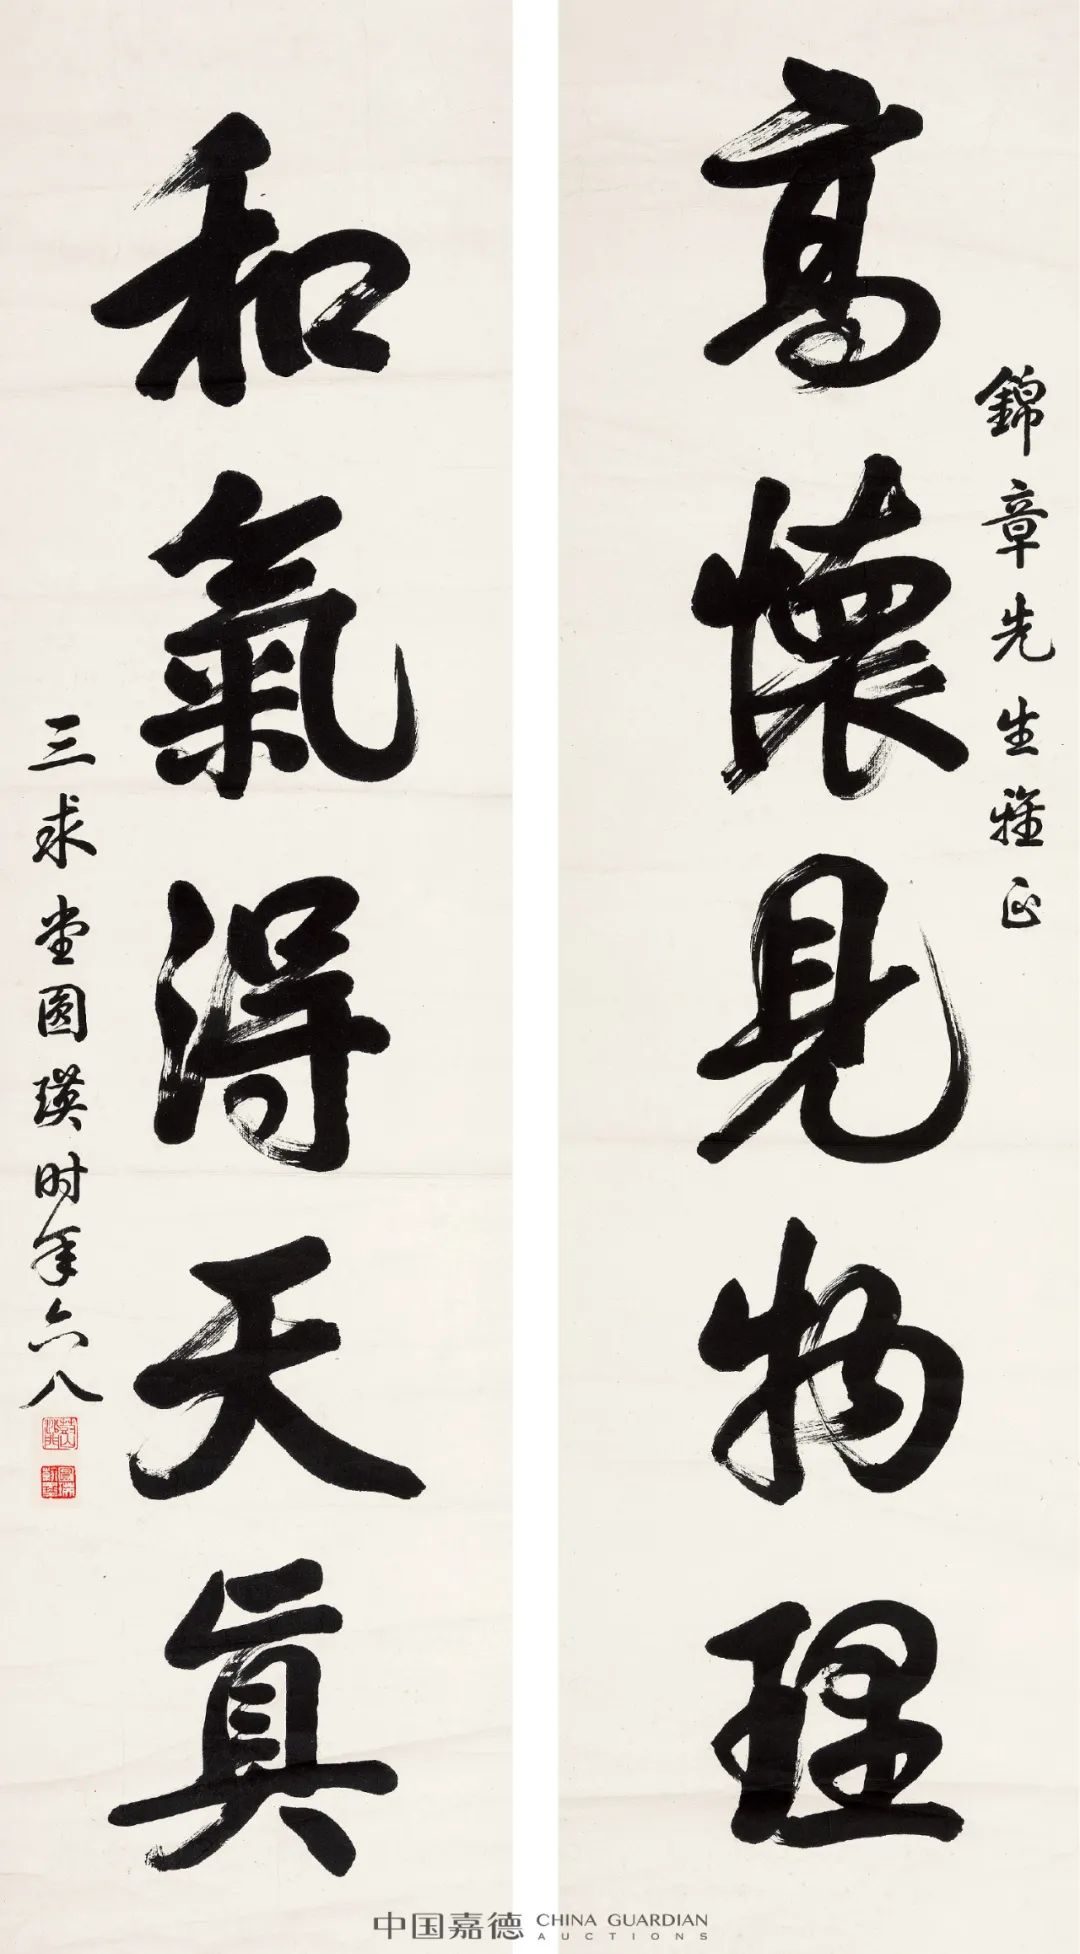 高懷見物理
錦章先生雅正
和氣得天真
三求堂圓瑛时年六八
中国嘉德 CHINA GUARDIAN
AUCTIONS